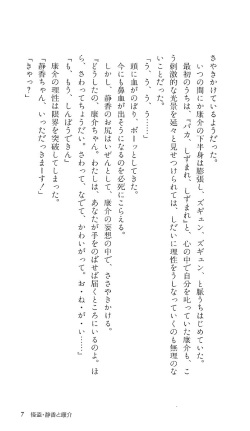 さやきかけているようだった。
いつの間にか康介の下半身は膨張し、ズギュン、ズギュン、と脈うちはじめていた。
最初のうちは、『バカ、しずまれ、しずまれ』と、心の中で自分を叱っていた康介も、こ
う刺激的な光景を延々と見せつけられては、しだいに理性をうしなっていくのも無理のな
いことだった。
「う、う、う、う……」
頭に血がのぼり、ボーッとしてきた。
今にも鼻血が出そうになるのを必死にこらえる。
しかし、静香のお尻はいぜんとして、康介の妄想の中で、ささやきかける。
『どうしたの、康介ちゃん。わたしは、あなたが手をのばせば届くところにいるのよ。ほ
ら、さわってちょうだい。さわって、なでて、かわいがって。お・ね・が・い……』
「も、もう、しんぼうできん」
康介の理性は限界を突破してしまった。
「静香ちゃん、いっただっきまーす!」
「きゃっ?」
7 ・静香と康介